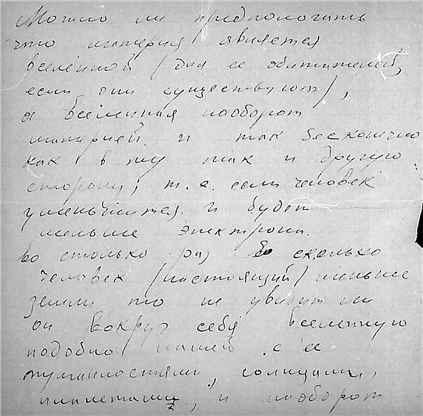 Можно ли предположить
что материя является
вселенной (для ее обитателей,
если они существуют),
а вселенная наоборот
материей и так бесконечно
как в ту так и другую
сторону; т.е. если человек
уменьшится и будет
меньше электрона
во столько раз во сколько
человек (настоящий) меньше
земли то не увидит ли
он вокруг себя вселенную
подобно нашей с ее
туманностями, солнцами,
планетами, и наоборот